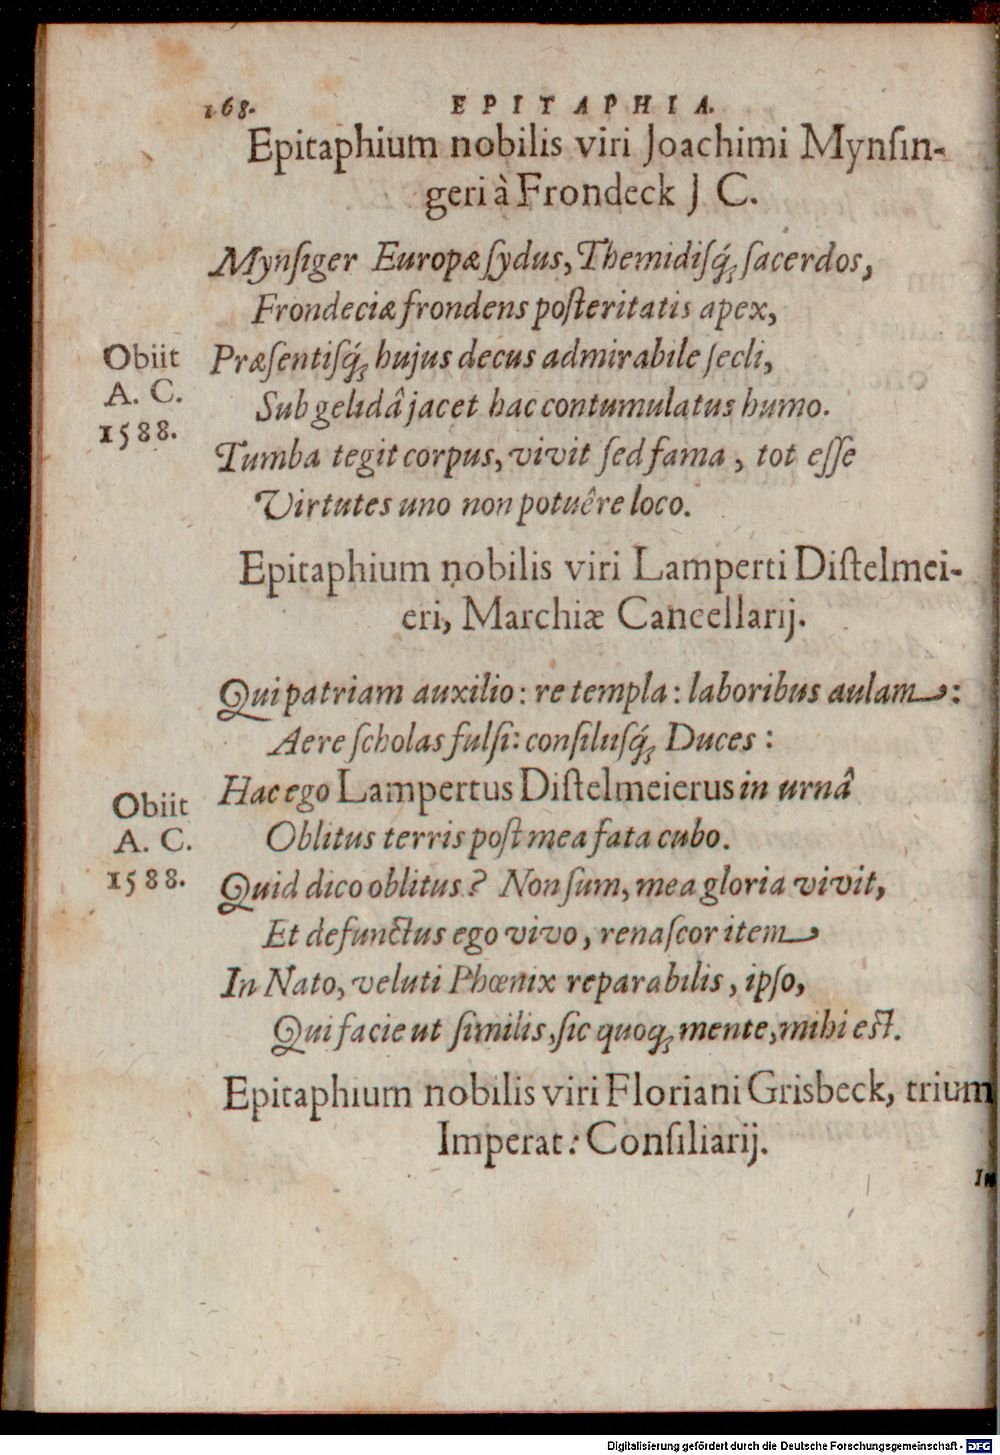 168. EPITAPHIA.
Epitaphium nobilis viri Joachimi Mynſin-
geri à Frondeck J C.
Mynſiger Europæ ſydus, Themidiſq́; ſacerdos,
Frondeciæ frondens poſteritatis apex,
Obiit
A. C.
1588.
Præſentiſq́; hujus decus admirabile ſecli,
Sub gelidâ jacet hac contumulatus humo.
Tumba tegit corpus, vivit ſed fama, tot eſſe
Virtutes uno non potuêre loco.
Epitaphium nobilis viri Lamperti Diſtelmei-
eri, Marchiæ Cancellarij.
Qui patriam auxilio: re templa: laboribus aulam:
Aere ſcholas fulſi: conſiliiſq́; Duces:
Obiit
A. C.
1588.
Hac ego Lampertus Diſtelmeierus in urnâ
Oblitus terris poſt mea fata cubo.
Quid dico oblitus? Non ſum, mea gloria vivit,
Et defunctus ego vivo, renaſcor item
In Nato, veluti Phœnix reparabilis, ipſo,
Qui facie ut ſimilis, ſic quoq; mente, mihi eſt.
Epitaphium nobilis viri Floriani Grisbeck, trium
Imperat: Conſiliarij.
In
Digitalisierung gefördert durch die Deutsche Forschungsgemeinschaft - DFG